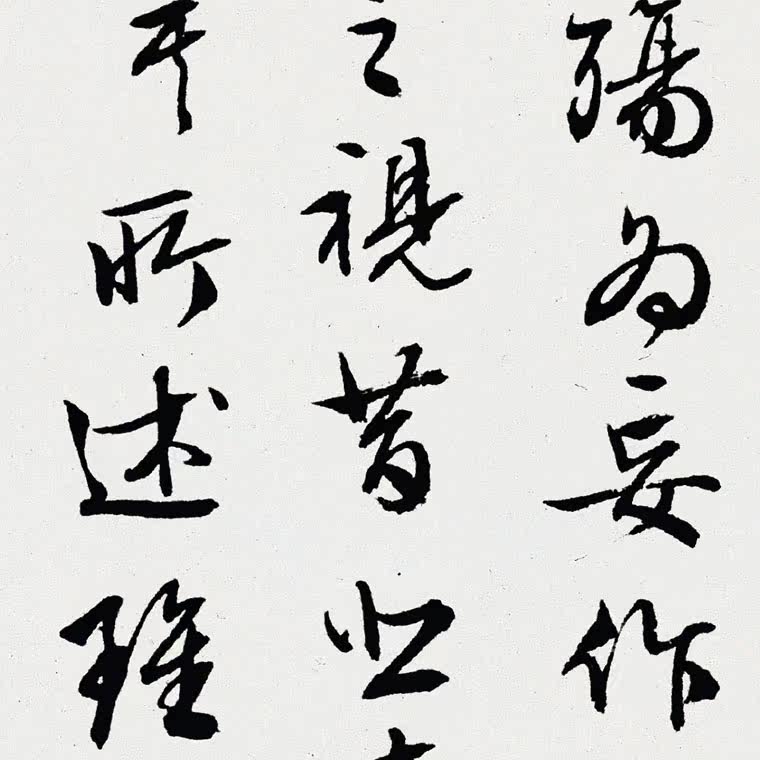 殤為妄作
之視昔悲
其所述雖